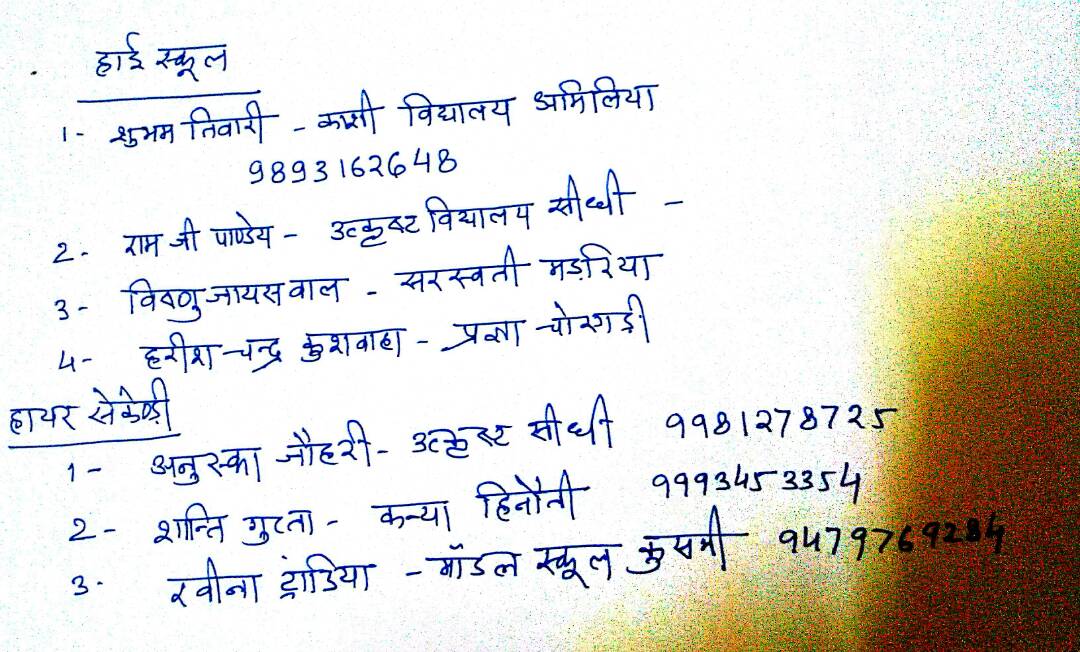 हाई स्कूल
1- शुभम तिवारी - काशी विद्यालय अमिलिया
9893162648
2- राम जी पाण्डेय - उत्कृष्ट विद्यालय सीधी -
3- विष्णु जायसवाल - सरस्वती मड़रिया
4- हरीश चन्द्र कुशवाहा - प्रज्ञा चोरगड़ी
हायर सेकेण्ड्री
1- अनुस्का जौहरी - उत्कृस्ट सीधी 9981278725
2- शान्ति गुप्ता - कन्या हिनौती 9993453354
3. रवीना ट्रांडिया - मॉडल स्कूल कुसमी 9479769284